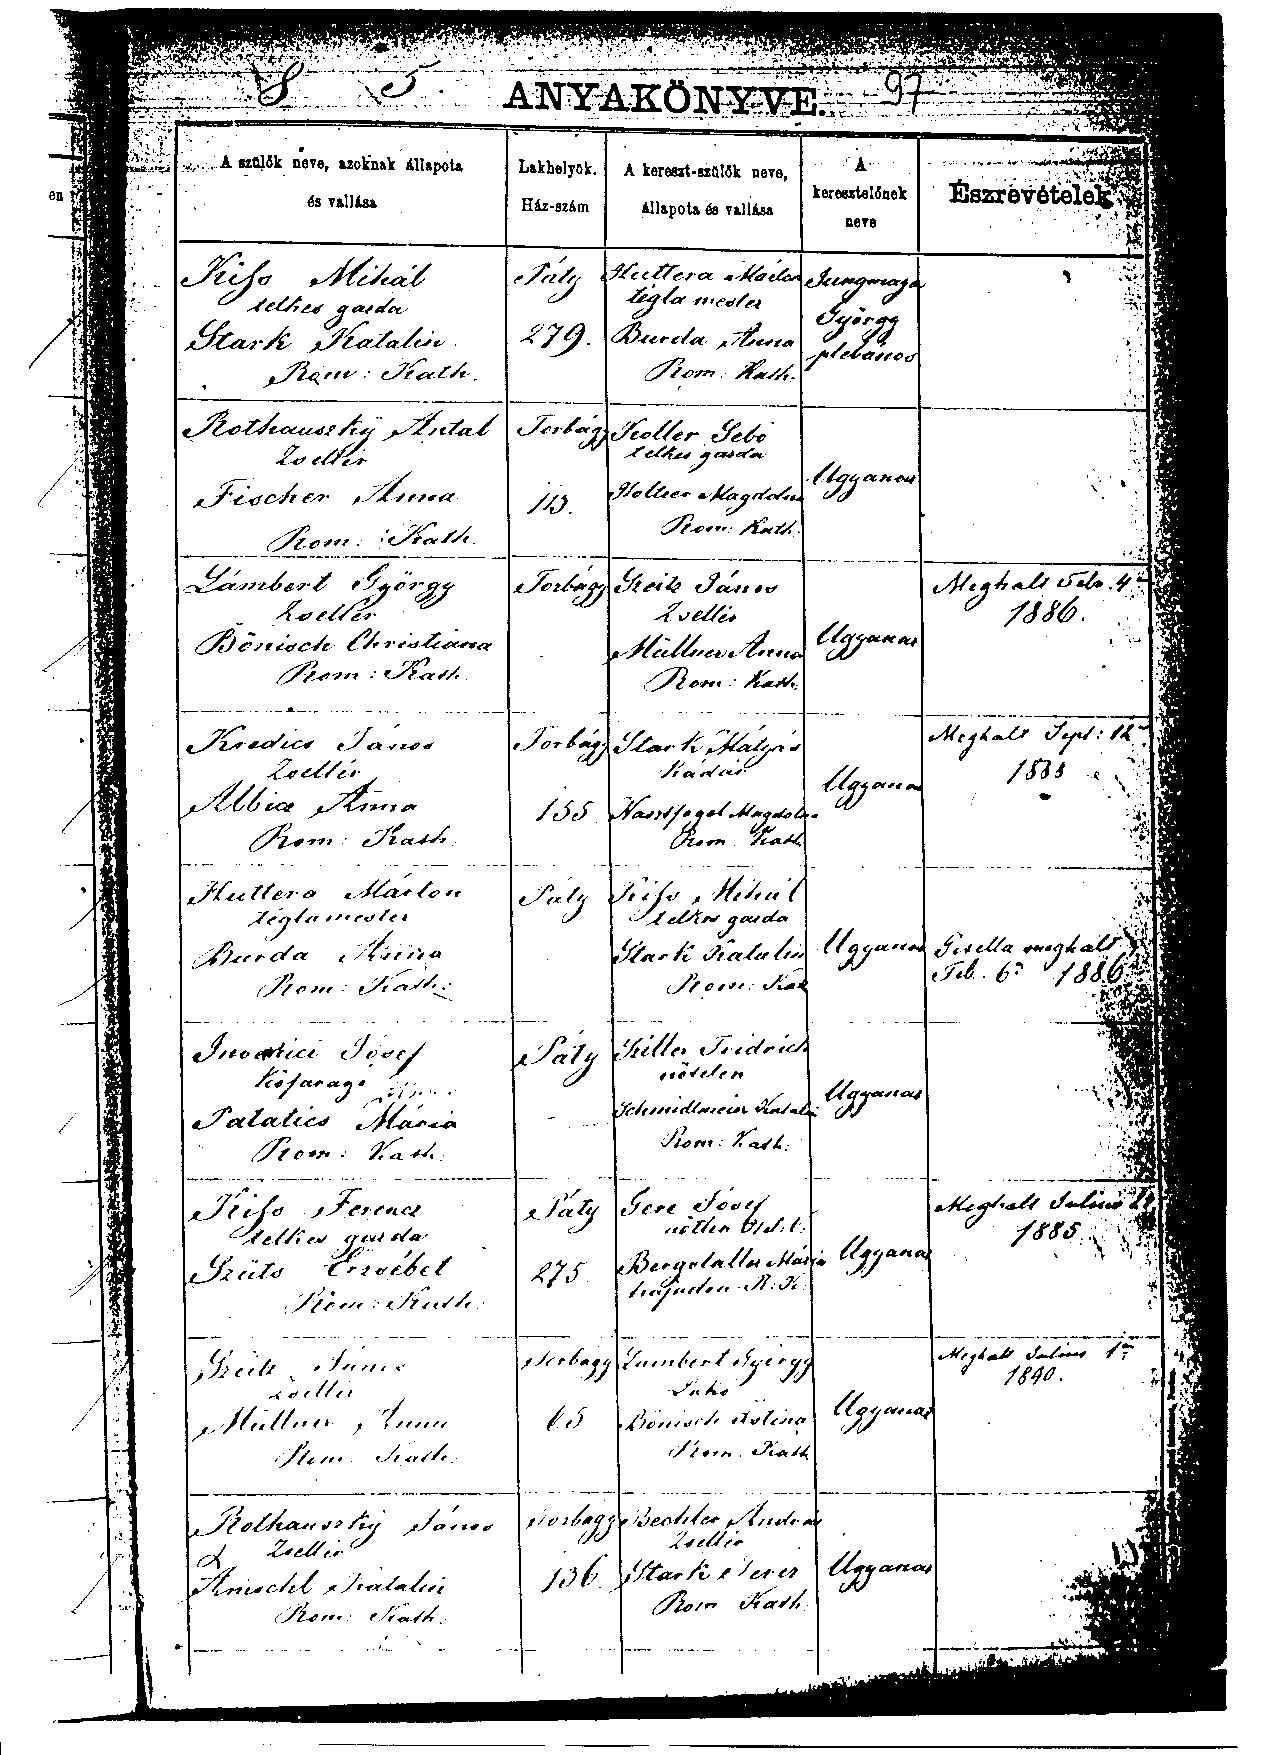 8 5. ANYAKÖNYVE. 97
A szülők neve, azoknak állapota
és vallása
Lakhelyök.
Ház-szám
A kereszt-szülők neve,
állapota és vallása
A
keresztelőnek
neve
Észrevételek
en
Kiss Mihál
telkes gazda
Stark Katalin
Rom: Kath.
Páty
279.
Huttera Márton
tégla mester
Burda Anna
Rom: Kath.
György
plebános
Rothauszky Antal
Zsellér
Fischer Anna
Rom: Kath.
Torbágy
113.
Koller Sebö
telkes gazda
Magdolna
Rom: Kath.
Ugyanaz
Lámbert György
Zsellér
Bönisch Christiana
Rom: Kath.
Torbágy
Szeitz János
Zsellér
Müllner Anna
Rom: Kath.
Ugyanaz
Meghalt Feb. 4én
1886.
Kredics János
Zsellér
Anna
Rom: Kath.
Torbágy
155
Stark Mátyás
Kádár
Magdolna
Rom. Kath
Ugyanaz
Meghalt Sept: 12én
Huttera Márton
téglamester
Burda Anna
Rom: Kath:
Páty
Kiss Mihál
telkes gazda
Stark Katalin
Rom: Kath
Ugyanaz
Gisella meghalt
Feb. 6án 1886
József
Kőfaragó
Patatics Mária
Rom: Kath.
Páty
Fridrich
nőtelen
Schmidlmeier Katalin
Rom: Kath.
Ugyanaz
Kiss Ferencz
telkes gazda
Szüts Erzsébet
Rom: Kath.
Páty
275
Gere József
Mária
hajadon R. K.
Ugyanaz
Meghalt Július
1885
Szeitz János
Zsellér
Müllner Anna
Rom. Kath.
Torbágy
65
Lambert György
Bönisch
Rom. Kath
Ugyanaz
Meghalt Július 1én
1890.
Rothauszky János
Zsellér
Katalin
Rom: Kath.
Torbágy
136.
Bechler András
Zsellér
Stark Teréz
Rom Kath
Ugyanaz